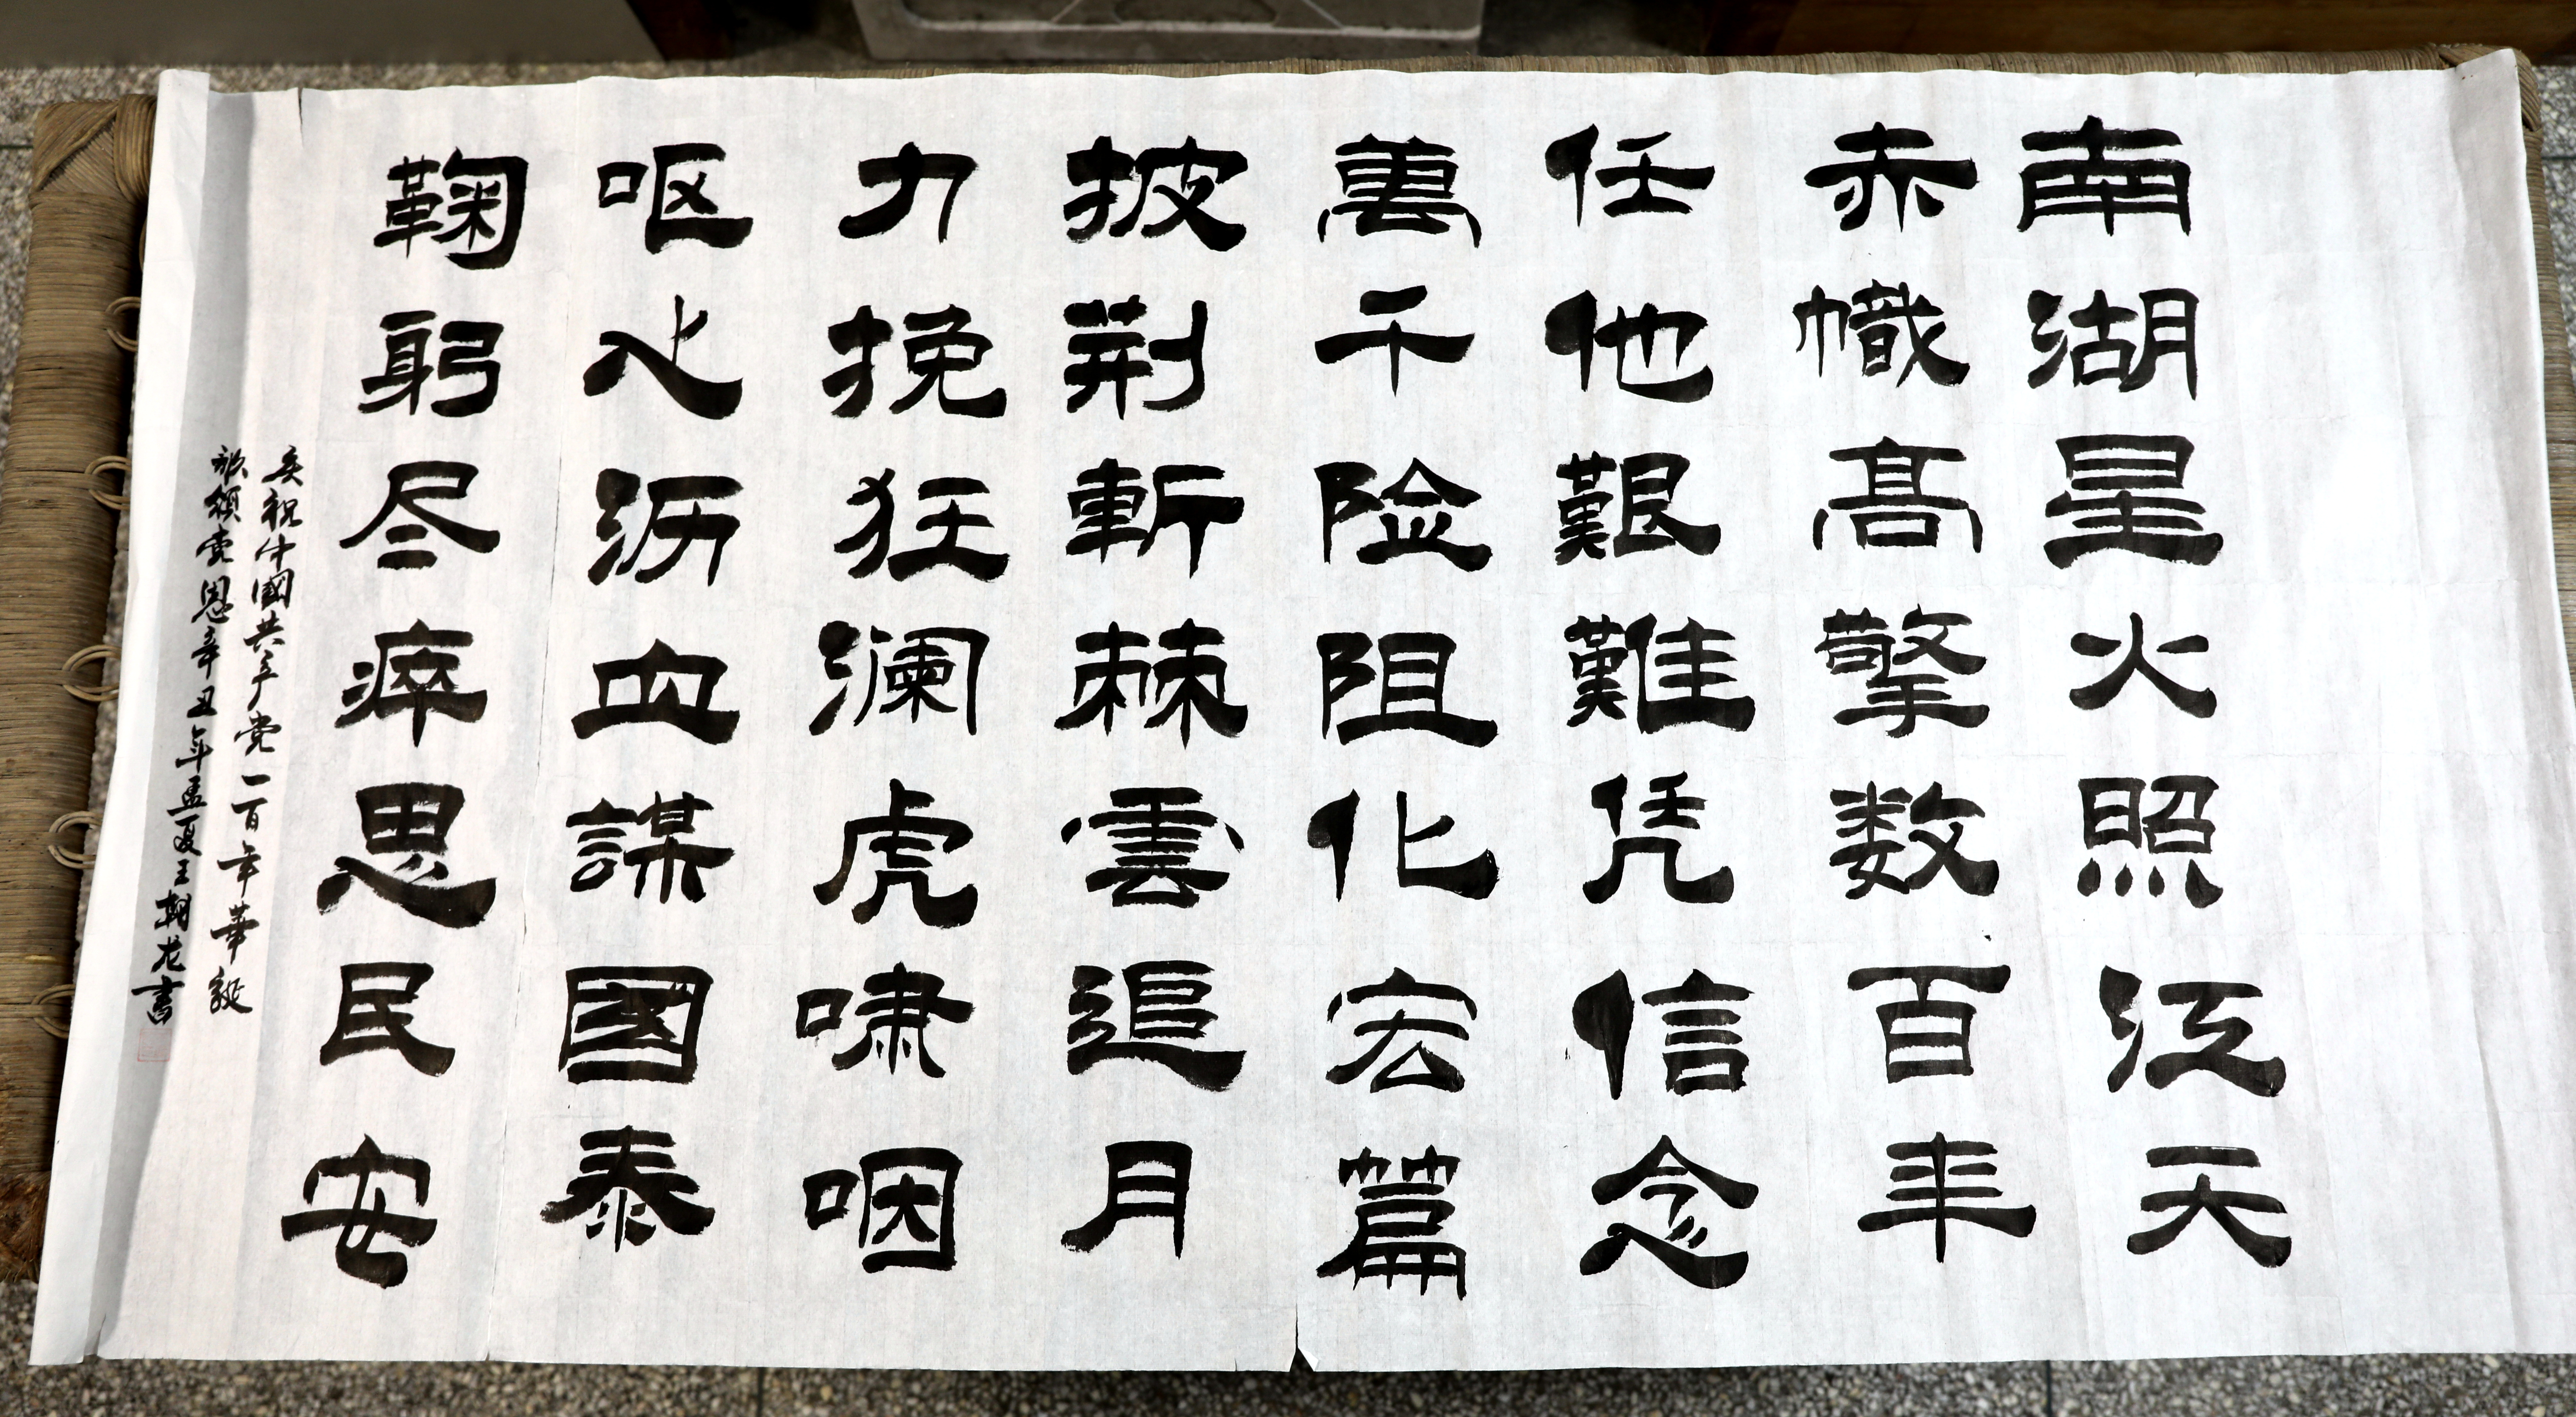 南湖星火照江天
赤幟高擎数百年
任他艱難凭信念
萬千险阻化宏篇
披荆斬棘雲追月
力挽狂澜虎啸咽
呕心沥血謀國泰
鞠躬尽瘁思民安
庆祝中國共产党一百年華誕
歌颂党恩辛丑年孟夏王朝龙書